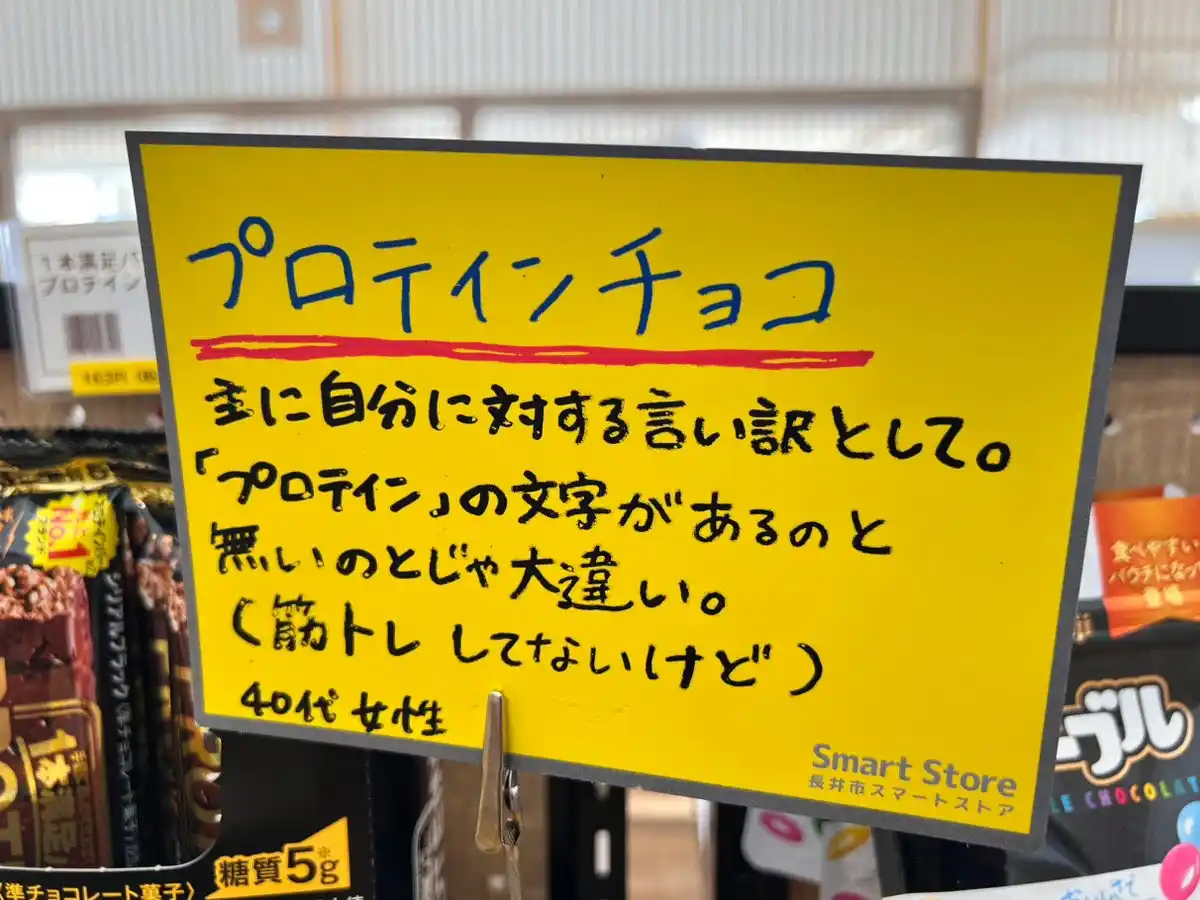 プロテインチョコ
主に自分に対する言い訳として。
「プロテイン」の文字があるのと
無いのとじゃ大違い。
(筋トレしてないけど)
40代女性
Smart Store
長井市スマートストア
1本満足バ
プロテイン
No.1
1本満足
糖質5g※
(準チョコレート菓子)
食べやすい
パウチになって
登場
ーブル
LE CHOCOLAT